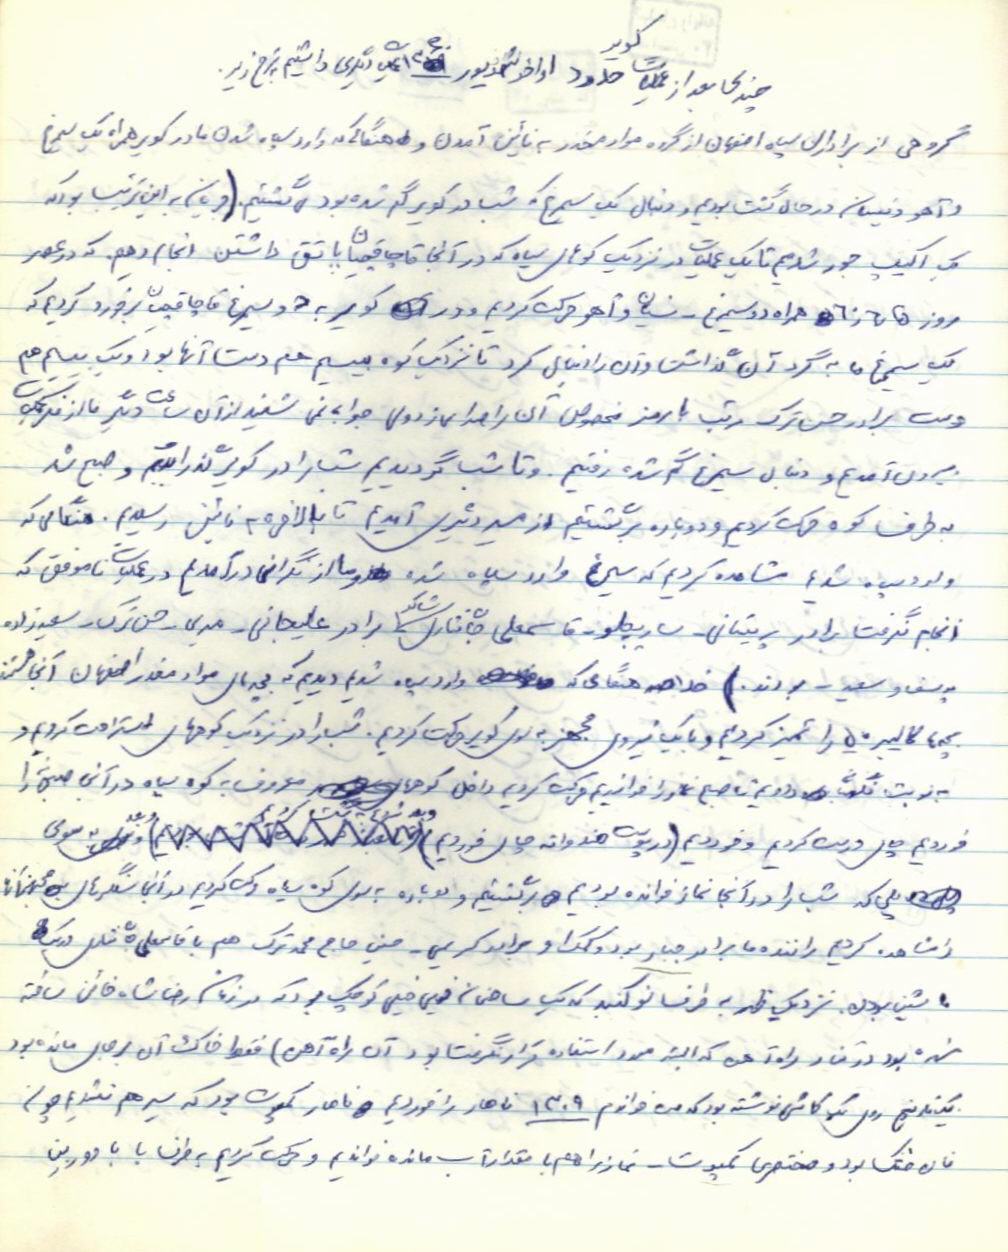 کویر
چندی بعد از عملیات حدود اواخر شهریور عملیات دیگری داشتیم بشرح زیر.
گروهی از برادران سپاه اصفهان از گروه مواد مخدر به نائین آمدند و هنگامی که وارد سپاه شدند ما در کویر همراه یک سیمرغ
و آهو و نیسان در حال گشت بودیم و دنبال یک سیمرغ که شب در کویر گم شده بود می گشتیم. (جریان به این ترتیب بود که
یک اکیپ جور شدیم تا یک عملیات در نزدیک کوههای سیاه که در آنجا قاچاقچیان پاتق داشتن انجام دهیم. که در عصر
روز همراه دو سیمرغ - نیسان و آهو حرکت کردیم و در کویر به دو سیمرغ قاچاقچیان برخورد کردیم که
یک سیمرغ ما به گرد آن گذاشت و آن را دنبال کرد تا نزدیک کوه بیسیم هم دست آنها بود و یک بیسیم هم
دست برادر حسن ترک مرتب با رمز مخصوص آن را صدا میزد ولی جوابی نمی شنید از آن ساعت دیگر ما از
بیرون آمدیم و دنبال سیمرغ گم شده رفتیم. و تا شب گردیدیم شب را در کویر گذراندیم و صبح شد
به طرف کوه حرکت کردیم و دوباره برگشتیم از مسیر دیگری آمدیم تا بالاخره به نائین رسیدیم. هنگامی که
وارد سپاه شدیم مشاهده کردیم که سیمرغ وارد سپاه شده و ما از نگرانی درآمدیم در عملیات ناموفق که
انجام گرفت برادر پریشانی - قاسمعلی برادر علیجانی - مدنی - حسن ترک - سعیدزاده
یوسف و سعید - بودند.) خلاصه هنگامی که وارد سپاه شدیم دیدیم که بچه های مواد مخدر اصفهان آنجا هستند
بچه ها کالیبر ۵۰ را تمیز کردیم و با یک نیروی مجهز به سوی کویر حرکت کردیم. شب را در نزدیک کوههای استراحت کردیم و
به نوبت نگهبانی دادیم تا صبح نماز را خواندیم حرکت کردیم داخل کوههای معروف به کوه سیاه در آنجا صبحانه را
خوردیم چای درست کردیم و خوردیم (در پوست هندوانه چای خوردیم) به سوی
پلی که شب را در آنجا نماز خوانده بودیم برگشتیم و دوباره به سوی کوه سیاه حرکت کردیم در آنجا سنگرهای
را مشاهده کردیم راننده ما برادر جبار بود و کمک او برادر کریمی - حسن حاج محمد ترک هم با قاسمعلی
ماشین بودن. نزدیک ظهر به طرف گنبد که یک ساختمان قدیمی خیلی کوچک بود که در زمان رضا شاه خائن ساخته
شده بود در کنار راه آهن که البته مورد استفاده قرار نگرفته بود آن راه آهن) فقط خاک آن بر جای مانده بود
یک تاریخ روی یک کاشی نوشته بود که می خوانم ۱۳۰۹ ناهار را خوردیم ناهار کمپوت بود که سیر هم نشدیم چون
نان خشک بود و مختصری کمپوت - نماز را هم با مقدار آب مانده خواندیم و حرکت کردیم به طرف با دوربین